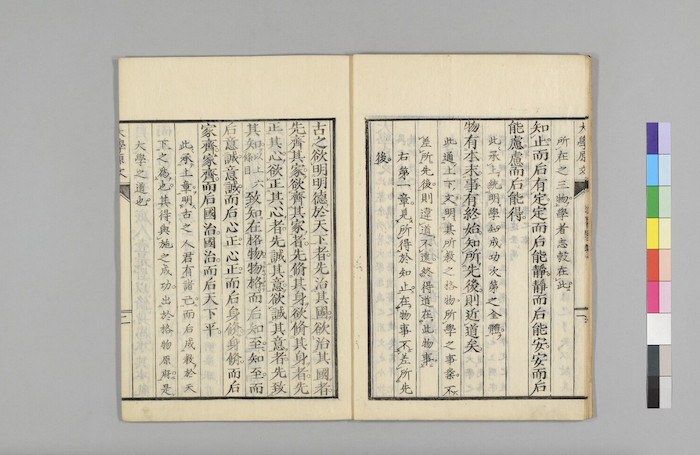 大學原文
所在之三物學者志敎在此
知止而后有定定而后能靜靜而后能安安而后
能慮慮而后能得
此承上統明學知成功次第之全體
物有本末事有終始知所先後則近道矣
此通上下文明其所敎之格物所學之事業不
差所先後則違道不遠終得道在此物事
右第一章見所得於知止在物事不差所先
後
古之欲明明德於天下者先治其國欲治其國者
先齊其家欲齊其家者先脩其身欲脩其身者先
正其心欲正其心者先誠其意欲誠其意者先致
其知以上六條目致知在格物物格而后知至知至而
后意誠意誠而后心正心正而后身脩身脩而后
家齊家齊而后國治國治而后天下平
此承上章明古之人君有諸己而后成敎於天
下之應也其得與施之成功出於格物原肝是
大學之道也
大學原文